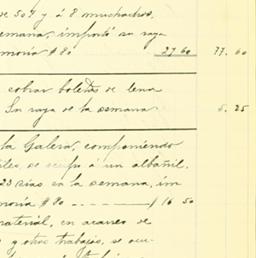 de 50 y á 8 muchachos,
semana, importó su raya
moria # 80 27 60 77. 60
cobrar boletas de lena
Su raya de la semana 5. 25
la Galera, componiendo
se ocupó á un albañil.
23 rias en la semana, im
moria # 80 16 50
material, en acarreo de
y otros trabajos, se ocu-